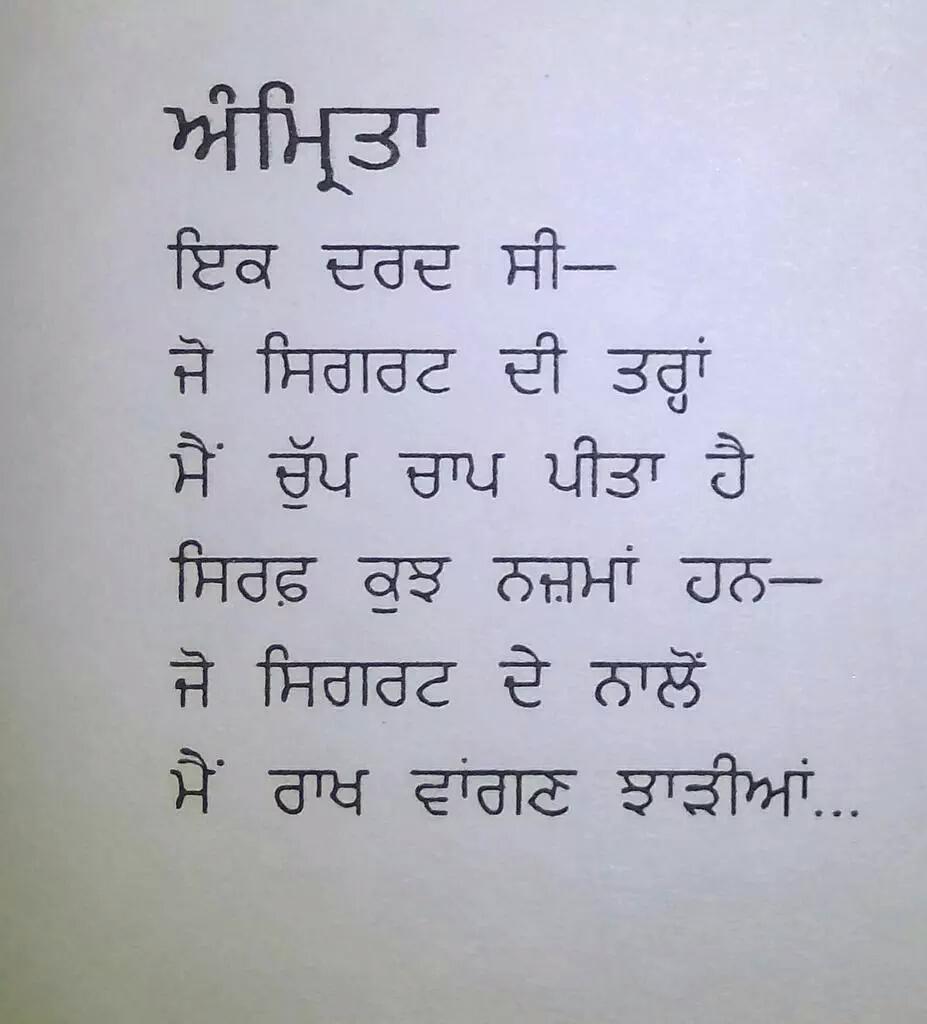 ਅੰਮ੍ਰਿਤਾ
ਇਕ ਦਰਦ ਸੀ—
ਜੋ ਸਿਗਰਟ ਦੀ ਤਰ੍ਹਾਂ
ਮੈਂ ਚੁੱਪ ਚਾਪ ਪੀਤਾ ਹੈ
ਸਿਰਫ਼ ਕੁਝ ਨਜ਼ਮਾਂ ਹਨ—
ਜੋ ਸਿਗਰਟ ਦੇ ਨਾਲੋਂ
ਮੈਂ ਰਾਖ ਵਾਂਗਣ ਝਾੜੀਆਂ...